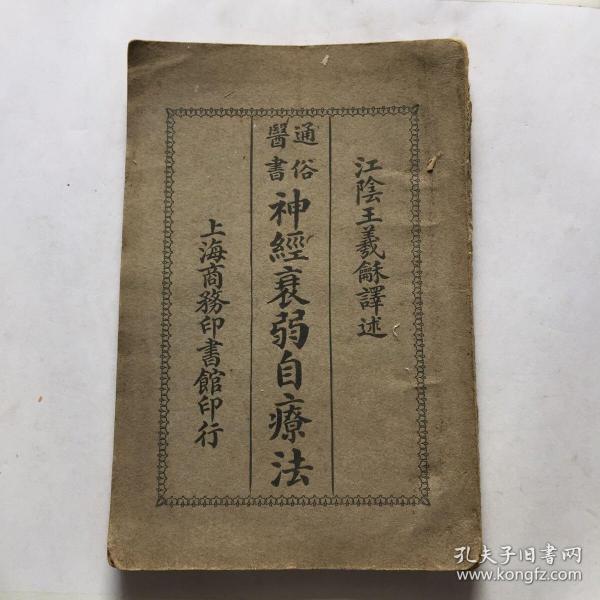 江陰王羲龢譯述
通俗
醫書
神經衰弱自療法
上海商務印書館印行
孔夫子旧书网
www.kongfz.com